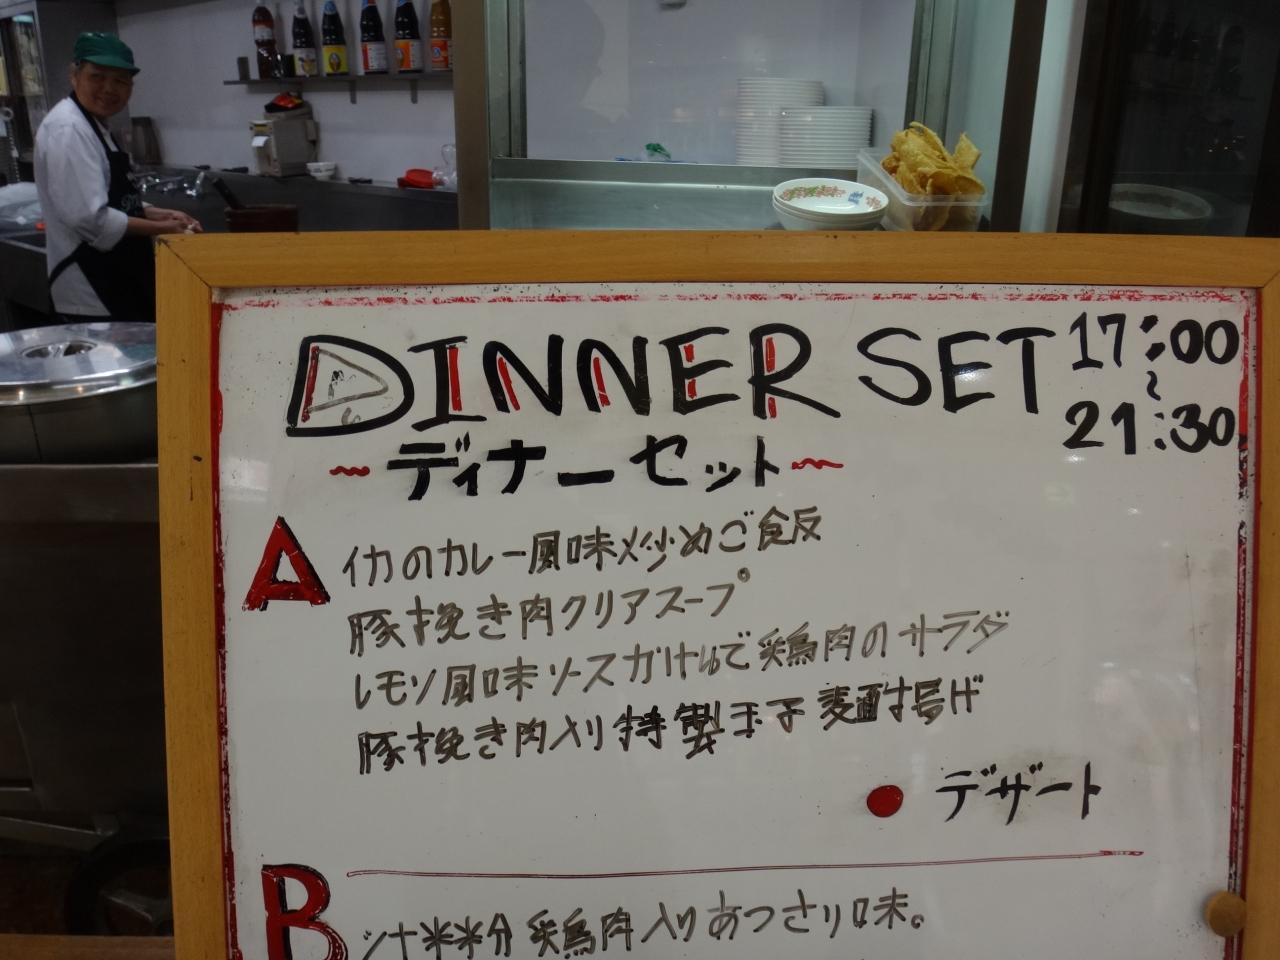 DINNER SET 17:00
~
21:30
~ディナーセット~
A イカのカレー風味炒めご飯
豚挽き肉クリアスープ
レモン風味ソースがけゆで鶏肉のサラダ
豚挽き肉入り特製玉子麺揚げ
● デザート
B 汁米粉 鶏肉入りあっさり味。